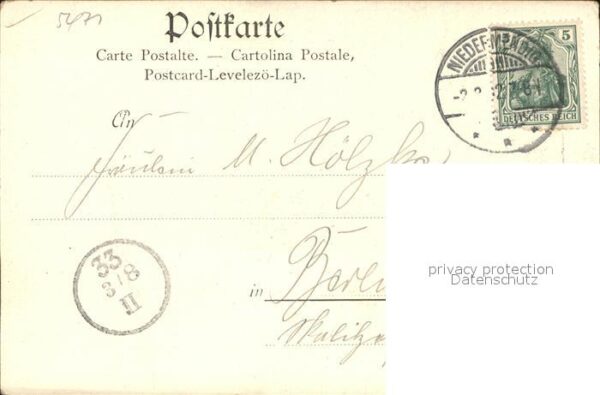 5471
Postkarte
Carte Postale. — Cartolina Postale,
Postcard-Levelezö-Lap.
5
DEUTSCHES REICH
An
Fräulein M. Hölzk
in Berlin
33
3/8
II
privacy protection
Datenschutz